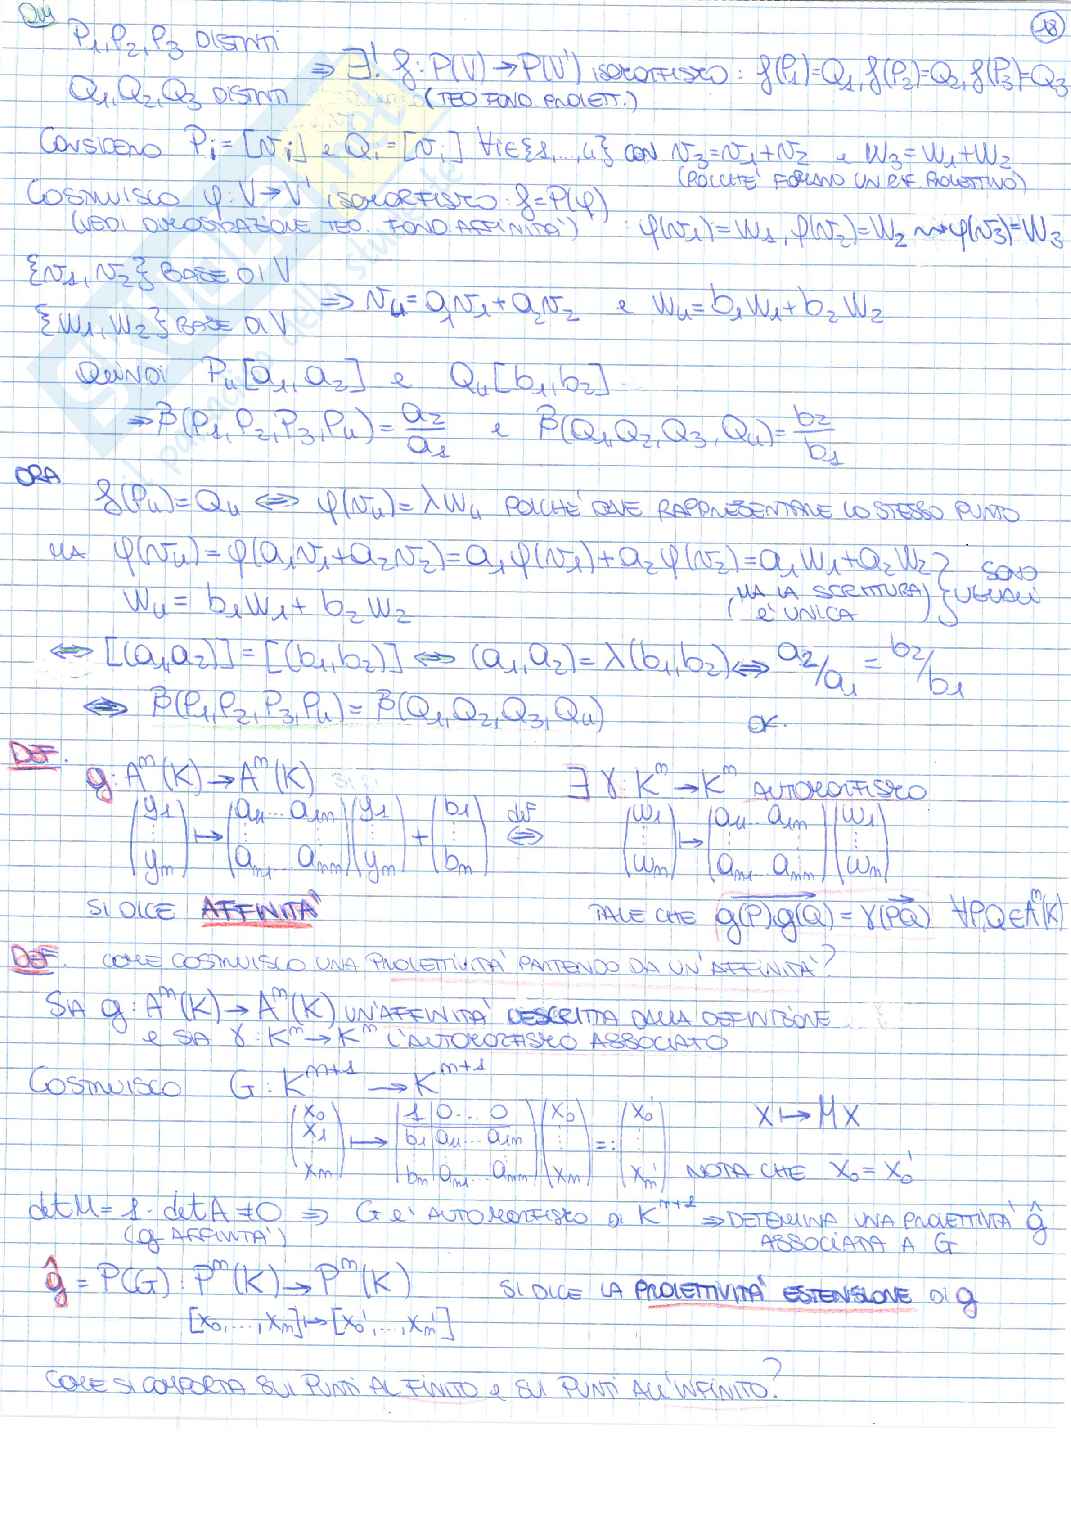 DIM
18
P₁, P₂, P₃ DISTINTI
⇒ ∃! f: P(V) → P(V') ISOMORFISMO : f(P₁)=Q₁, f(P₂)=Q₂, f(P₃)=Q₃
Q₁, Q₂, Q₃ DISTINTI (TEO FOND PROIETT.)
CONSIDERO Pᵢ=[vᵢ] e Qᵢ=[wᵢ] ∀i∈{1,...,4} CON v₃=v₁+v₂ e w₃=w₁+w₂
(POICHÈ FORMANO UN RIF PROIETTIVO)
COSTRUISCO φ: V→V' ISOMORFISMO: f=P(φ)
(VEDI DIMOSTRAZIONE TEO. FOND AFFINITÀ) : φ(v₁)=w₁, φ(v₂)=w₂ ⇝ φ(v₃)=w₃
{v₁, v₂} BASE DI V
⇒ v₄=a₁v₁+a₂v₂ e w₄=b₁w₁+b₂w₂
{w₁, w₂} BASE DI V
QUINDI P₄[a₁, a₂] e Q₄[b₁, b₂]
⇒ β(P₁, P₂, P₃, P₄)= a₂/a₁ e β(Q₁, Q₂, Q₃, Q₄)= b₂/b₁
ORA f(P₄)=Q₄ ⇔ φ(v₄)=λw₄ POICHÈ DEVE RAPPRESENTARE LO STESSO PUNTO
MA φ(v₄)=φ(a₁v₁+a₂v₂)=a₁φ(v₁)+a₂φ(v₂)=a₁w₁+a₂w₂ } SONO UGUALI
w₄= b₁w₁+b₂w₂ (MA LA SCRITTURA È UNICA)
⇔ [(a₁,a₂)]=[(b₁,b₂)] ⇔ (a₁,a₂)=λ(b₁,b₂) ⇔ a₂/a₁ = b₂/b₁
⇔ β(P₁,P₂,P₃,P₄)=β(Q₁,Q₂,Q₃,Q₄) OK.
DEF. g: Aⁿ(K)→Aⁿ(K) ∃ γ: Kⁿ→Kⁿ AUTOMORFISMO
(y₁ ⋮ yₙ) ↦ (a₁₁...a₁ₙ ⋮ aₙ₁...aₙₙ)(y₁ ⋮ yₙ) + (b₁ ⋮ bₙ) def⇔ (w₁ ⋮ wₙ) ↦ (a₁₁...a₁ₙ ⋮ aₙ₁...aₙₙ)(w₁ ⋮ wₙ)
SI DICE AFFINITÀ TALE CHE g(P),g(Q) = γ(PQ) ∀P,Q∈Aⁿ(K)
DEF. COME COSTRUISCO UNA PROIETTIVITÀ PARTENDO DA UN'AFFINITÀ?
SIA g: Aⁿ(K)→Aⁿ(K) UN'AFFINITÀ DESCRITTA DALLA DEFINIZIONE
e SIA γ: Kⁿ→Kⁿ L'AUTOMORFISMO ASSOCIATO
COSTRUISCO G: Kⁿ⁺¹ → Kⁿ⁺¹
(x₀ x₁ ⋮ xₙ) ↦ (1 0...0 | b₁ a₁₁...a₁ₙ | ⋮ | bₙ aₙ₁...aₙₙ)(x₀ ⋮ xₙ) =: (x₀' ⋮ xₙ') X ↦ MX
NOTA CHE x₀=x₀'
det M= 1·det A ≠0 ⇒ G È AUTOMORFISMO DI Kⁿ⁺¹ ⇒ DETERMINA UNA PROIETTIVITÀ ĝ
(g AFFINITÀ) ASSOCIATA A G
ĝ = P(G): Pⁿ(K)→Pⁿ(K) SI DICE LA PROIETTIVITÀ ESTENSIONE DI g
[x₀,...,xₙ]↦[x₀',...,xₙ']
COME SI COMPORTA SUI PUNTI AL FINITO e SUI PUNTI ALL'INFINITO?